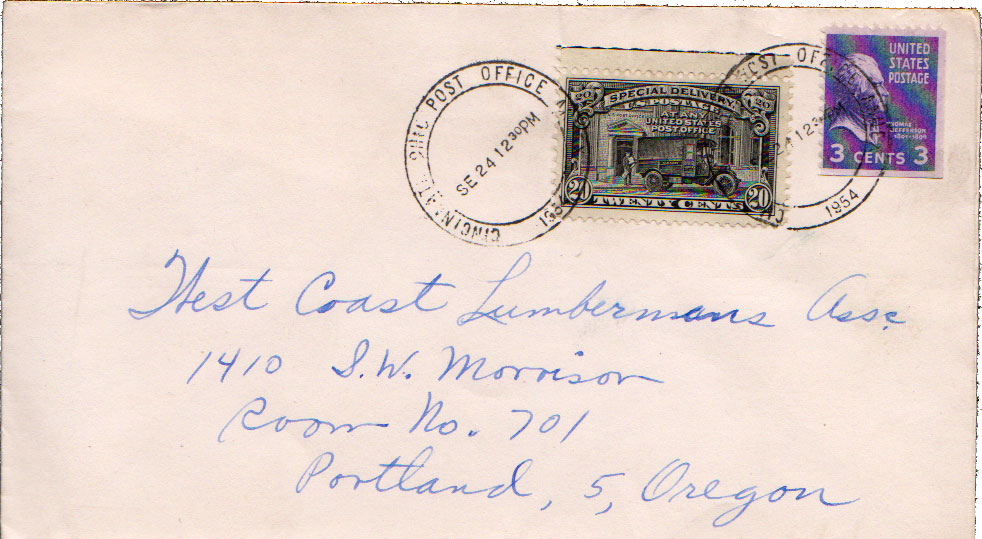 POST OFFICE
SE 24 12 30 PM
SPECIAL DELIVERY
20 20
U.S. POSTAGE
AT ANY
UNITED STATES
POST OFFICE
20 TWENTY CENTS 20
12 30 PM
1954
UNITED
STATES
POSTAGE
THOMAS
JEFFERSON
3 CENTS 3
West Coast Lumbermans Assc.
1410 S.W. Morrison
Room No. 701
Portland, 5, Oregon